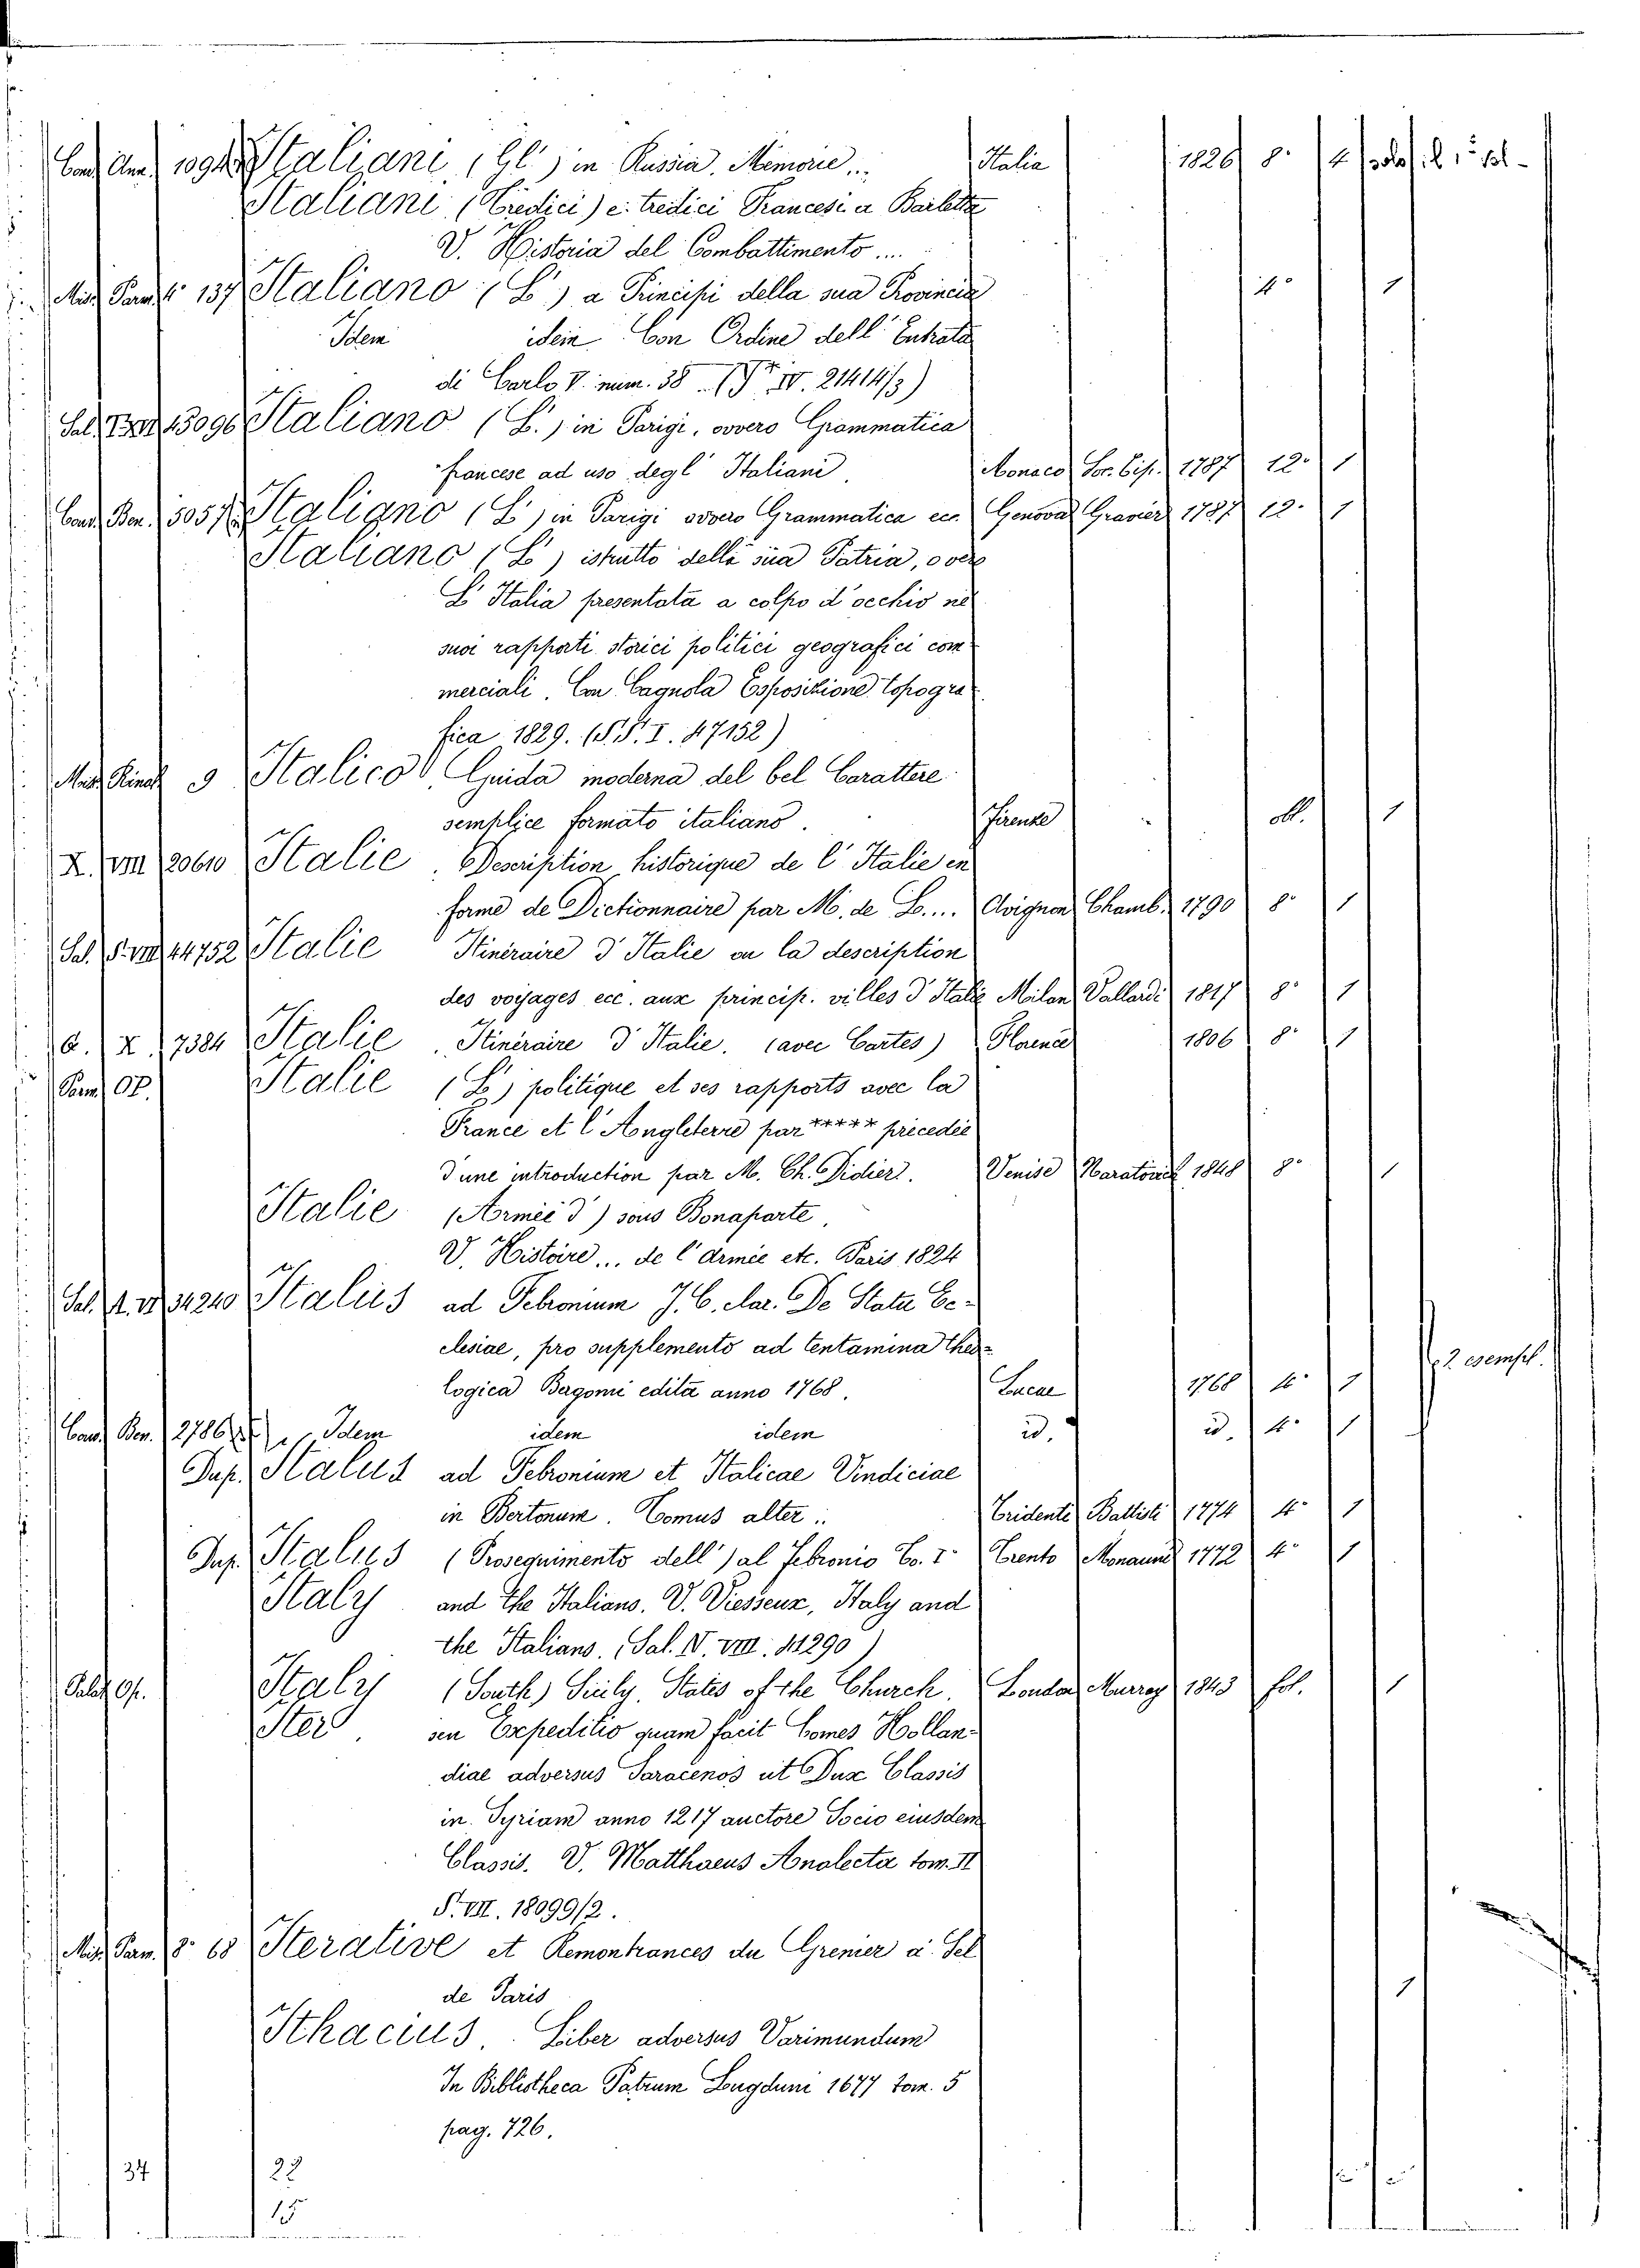 Cons. Ann. 1094 Italiani (Gl') in Russia. Memorie ... Italia 1826 8º 4 solo il 1º vol-
Italiani (Tredici) e tredici Francesi a Barletta
V. Historia del Combattimento ....
Misc. Parm. 4º 137 Italiano (L') a' Principi della sua Provincia 4º 1
Idem idem Con Ordine dell' Entrata
di Carlo V. num. 38 (Pr. IV. 21414/3)
Sal. 13096 Italiano (L') in Parigi, ovvero Grammatica
francese ad uso degl' Italiani. Monaco Soc. Tip. 1787 12º 1
Cons. Ben. 3057 Italiano (L') in Parigi ovvero Grammatica ecc. Genova Gravier 1787 12º 1
Italiano (L') istrutto della sua Patria, o vero
L' Italia presentata a colpo d'occhio ne'
suoi rapporti storici politici geografici com
merciali. Con Cagnola Esposizione topogra
fica 1829. (S. S. I. 47152)
Misc. 9 Italico. Guida moderna del bel Carattere
semplice formato italiano. Firenze obl. 1
X. VIII 20610 Italie. Description historique de l' Italie en
forme de Dictionnaire par M. de L.... Avignon Chamb. 1790 8º 1
Sal. S. VIII 44752 Italie Itinéraire d' Italie ou la description
des voyages ecc. aux princip. villes d' Italie Milan Vallardi 1817 8º 1
G. X. 7384 Italie. Itinéraire d' Italie. (avec Cartes) Florence 1806 8º 1
Pom. Op. Italie (L') politique et ses rapports avec la
France et l' Angleterre par ***** précedée
d'une introduction par M. Ch. Didier. Venise Naratovich 1848 8º 1
Italie (Armée d') sous Bonaparte,
V. Histoire... de l' Armée etc. Paris 1824
Sal. 34240 Italus ad Febronium J. C. clar. De Statu Ec-
clesiae, pro supplemento ad tentamina theo-
logica Bergomi edita anno 1768. Lucae 1768 4º 1 2 esempl.
Cons. Ben. 2786 Idem idem idem id. id. 4º 1
Dup. Italus ad Febronium et Italicae Vindiciae
in Bertonum. Tomus alter .. Tridenti Battisti 1774 4º 1
Dup. Italus (Proseguimento dell') al Febronio To. I. Trento Monauni 1772 4º 1
Italy and the Italians. V. Viesseux, Italy and
the Italians. (Sal. IV. VIII. 41290)
Palat. Op. Italy (South) Sicily. States of the Church. London Murray 1843 fol. 1
Iter. seu Expeditio quam facit Comes Hollan-
diae adversus Saracenos ut Dux Classis
in Syriam anno 1217 auctore Socio eiusdem
Classis. V. Matthaeus Analecta tom. II
S. VII. 18099/2.
Misc. Parm. 8º 68 Iterative et Remontrances du Grenier à Sel
de Paris 1
Ithacius. Liber adversus Varimundum
In Bibliotheca Patrum Lugduni 1677 tom. 5
pag. 726.
34 22
15